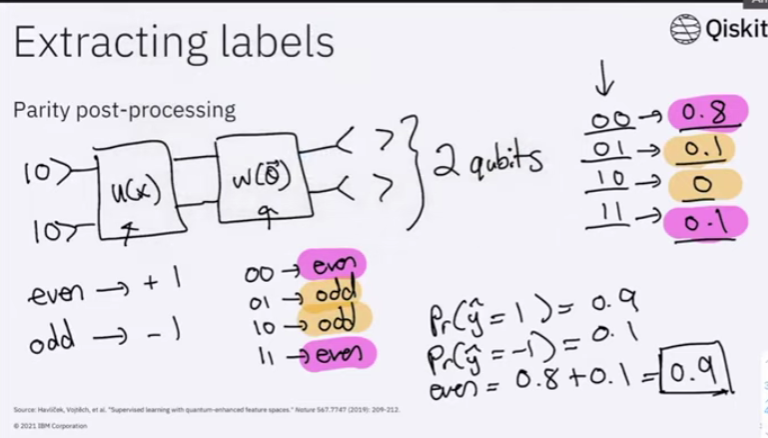 Extracting labels
Qiskit
Parity post-processing
|0>
|0>
U(x)
W(θ⃗)
< >
< >
} 2 qubits
↓
00 → 0.8
01 → 0.1
10 → 0
11 → 0.1
even → +1
odd → -1
00 → even
01 → odd
10 → odd
11 → even
Pr(ŷ = 1) = 0.9
Pr(ŷ = -1) = 0.1
even = 0.8 + 0.1 = 0.9
Source: Havlíček, Vojtěch, et al. "Supervised learning with quantum-enhanced feature spaces." Nature 567.7747 (2019): 209-212.
© 2021 IBM Corporation